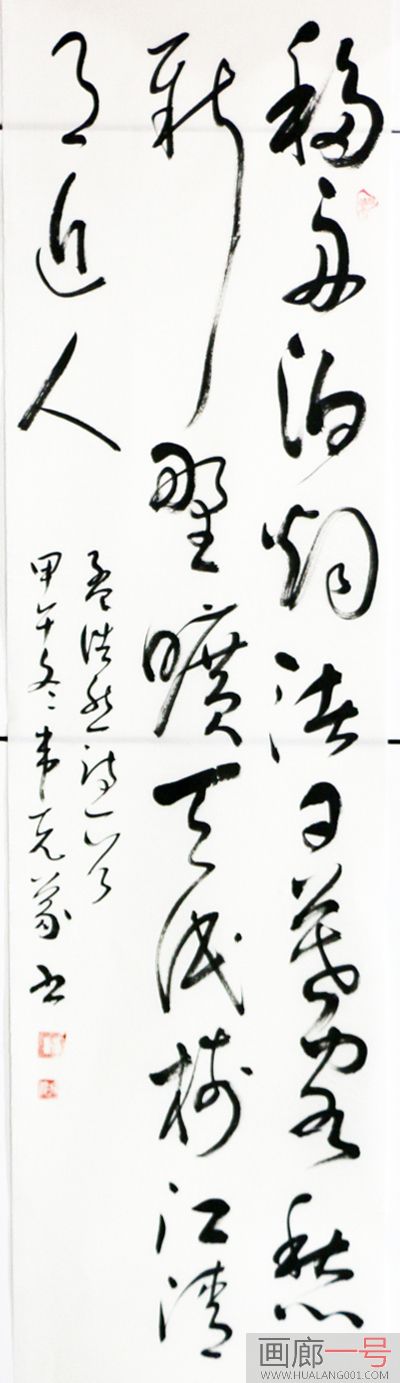 移舟泊烟渚日暮客愁
新野曠天低树江清
月近人
孟浩然诗一首
甲午冬韦克義书
画廊一号
WWW.HUALANG001.COM